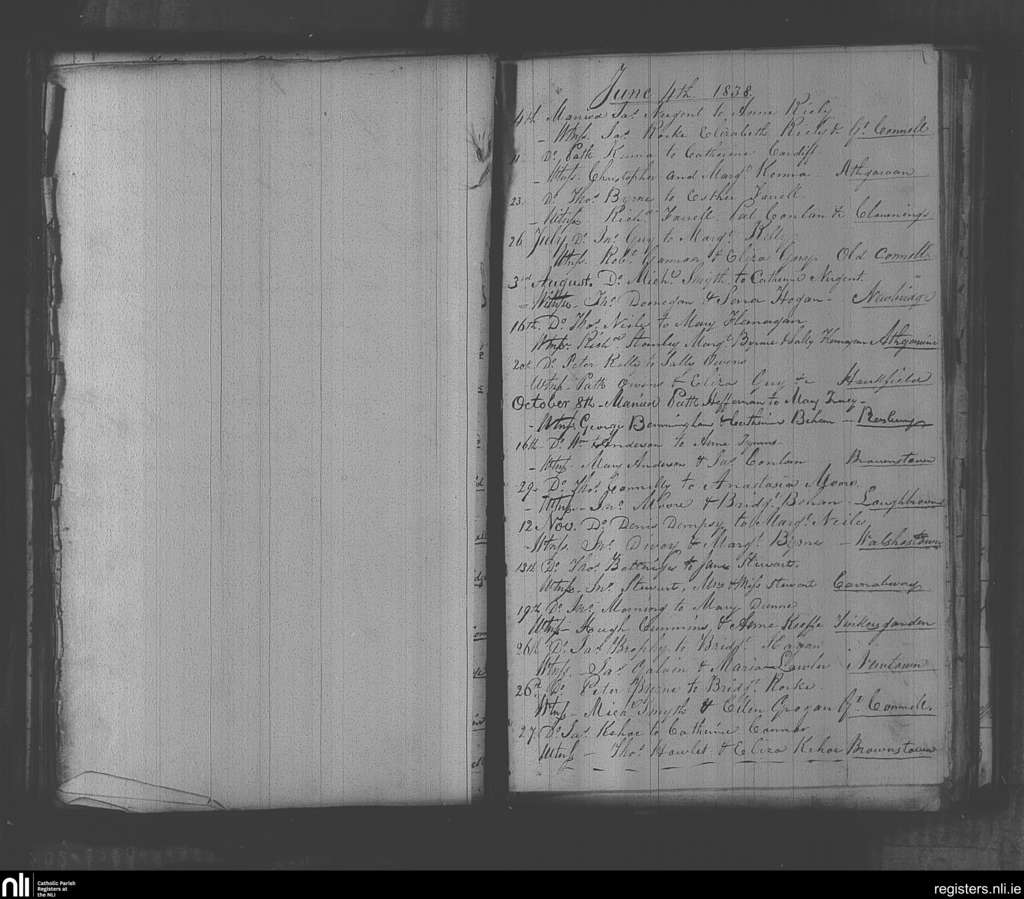 June 4th 1838
4th Married Jas. Nugent to Anne Kiely
– Wtnss. Jas. Rorke Elizabeth Gt. Connell
11 Do. Patk. Kenna to Catherine Cardiff
– Wtnss. Christopher and Margt. Kenna Athgarvan
23 Do. Thos. Byrne to Esther Farrell
– Witnss Richd. Farrell Pat Conlan &c
26 July Do. Jas. Guy to Margt. Kelly
Wtnss. Robt. Gannon & Eliza Guy Old Connell
3rd August. Do. Michl. Smyth to Catherine Nugent
– Witnss – Jas. Donnegan & Hogan – Newbridge
16th Do. Thos. Neile to Mary Flannagan
Wtnss. Richd. Stanley Margt. Byrne & Sally Flanagan Athgarvan
20th Do. Peter Kelly to Owens
Wtnss – Patk. Owens & Eliza Guy &c Hawkfield
October 8th – Married Patk. Heffernan to Mary
– Wtnss George Bermingham & Catherine Behan – Rosberry
16th – Do. Wm. Anderson to Anne
– Wtnss – Mary Anderson & Jas. Conlan Brownstown
29 – Do. Thos. Connelly to Anastasia Moore
– Wtnss – Jas. Moore & Bridgt. Behan – Loughbrown
12 Nov. Do. Denis Dempsy to Margt. Neile
– Wtnss. Jas. & Margt. Byrne – Walshestown
13th Do. Thos. to Jane Stewart.
Wtnss – Jno. Stewart, Mrs & Miss Stewart Carnalway
19th Do. Jas. Morning to Mary Dunne
Wtnss – Hugh Cummins & Anne Keeffe Tuckersgarden
26th Do. Jas. Brophy to Bridgt. Hagan
Wtnss. Jas. Galvin & Maria Lawler Newtown
26th Do. Peter Byrne to Bridgt. Rorke
Wtnss – Michl. Smyth & Ellen Grogan Gt. Connell.
27 Do. Jas. Kehoe to Catherine Connor
Wtnss – Thos. Howlet & Eliza Kehoe Brownstown
nli
Catholic Parish
Registers at
the NLI
registers.nli.ie